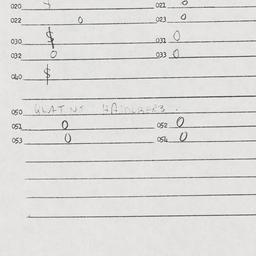 020 021
022 0 023 0
030 $ 031 0
032 0 033 0
040 $
050
051 0 052 0
053 0 054 0